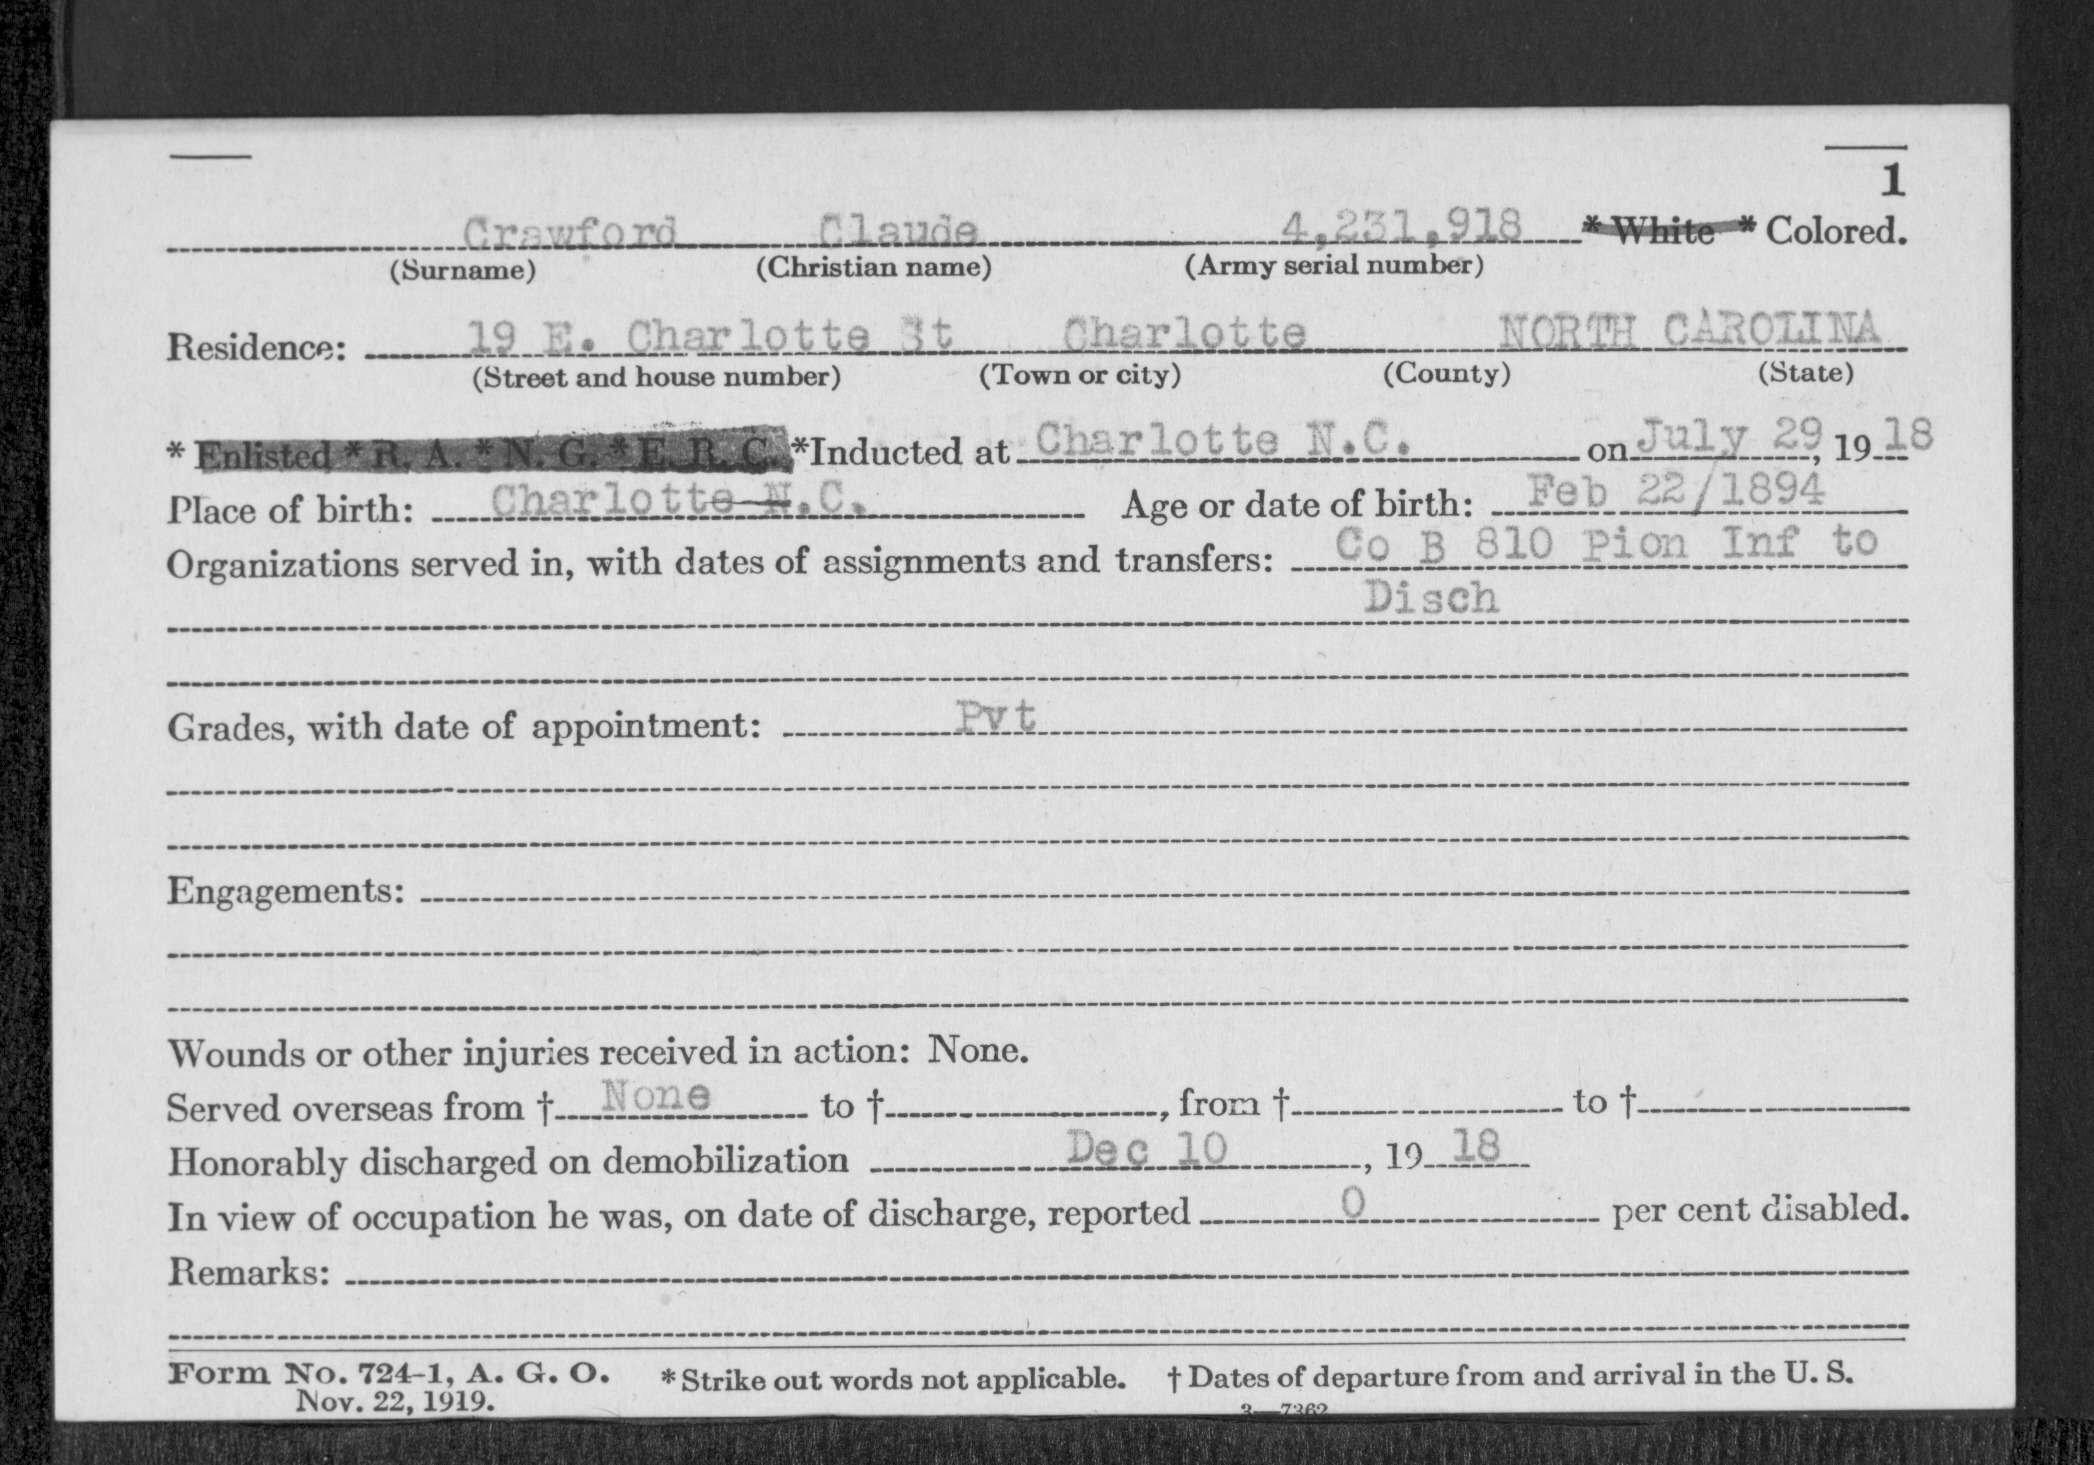 1
Crawford Claude 4,231,918 * White * Colored.
(Surname) (Christian name) (Army serial number)
Residence: 19 E. Charlotte St Charlotte NORTH CAROLINA
(Street and house number) (Town or city) (County) (State)
* Enlisted * R. A. * N. G. * E. R. C. *Inducted at Charlotte N.C. on July 29, 19 18
Place of birth: Charlotte N.C. Age or date of birth: Feb 22/1894
Organizations served in, with dates of assignments and transfers: Co B 810 Pion Inf to
Disch
Grades, with date of appointment: Pvt
Engagements:
Wounds or other injuries received in action: None.
Served overseas from † None to †, from † to †
Honorably discharged on demobilization Dec 10, 19 18
In view of occupation he was, on date of discharge, reported 0 per cent disabled.
Remarks:
Form No. 724-1, A. G. O. * Strike out words not applicable. † Dates of departure from and arrival in the U. S.
Nov. 22, 1919. 3—7362